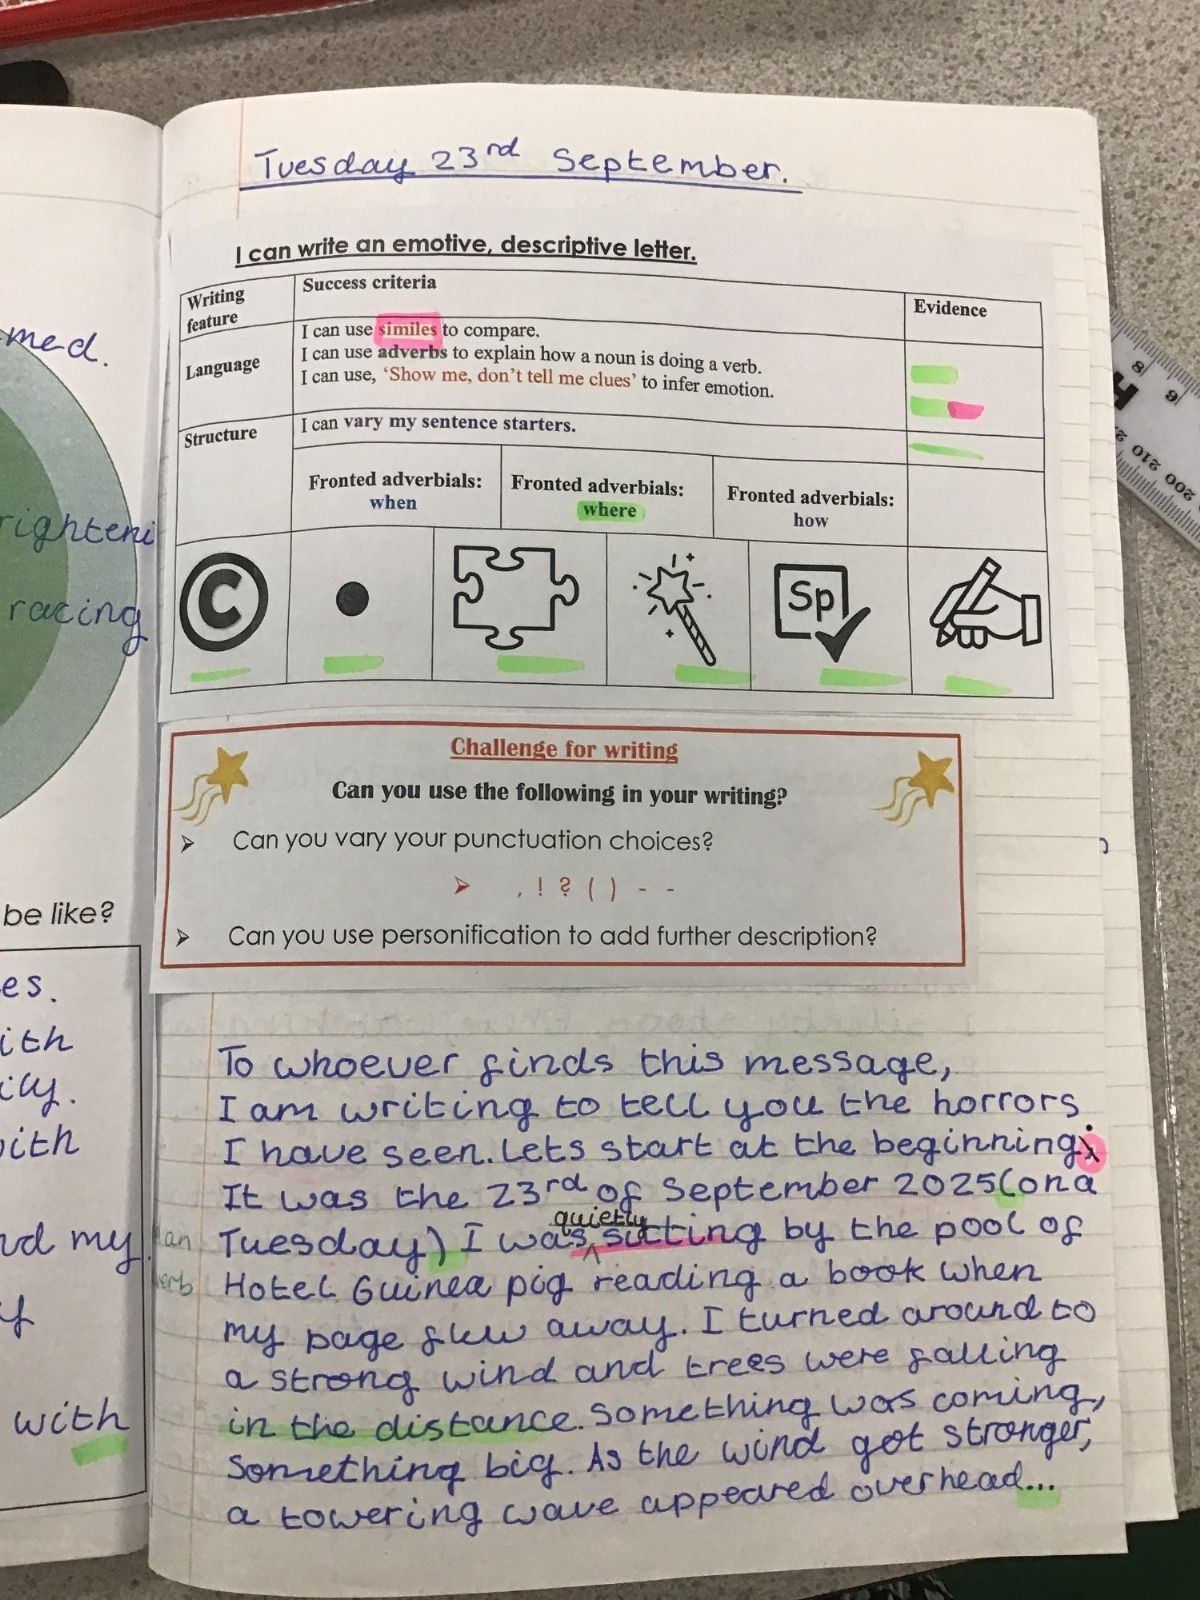 Tuesday 23rd September.
I can write an emotive, descriptive letter.
Writing feature
Success criteria
Evidence
Language
I can use similes to compare.
I can use adverbs to explain how a noun is doing a verb.
I can use, ‘Show me, don’t tell me clues’ to infer emotion.
Structure
I can vary my sentence starters.
Fronted adverbials: when
Fronted adverbials: where
Fronted adverbials: how
C
Sp
Challenge for writing
Can you use the following in your writing?
Can you vary your punctuation choices?
, ! ? ( ) - -
Can you use personification to add further description?
To whoever finds this message,
I am writing to tell you the horrors
I have seen. Lets start at the beginning:
It was the 23rd of September 2025(on a
quietly
Tuesday) I was sitting by the pool of
Hotel Guinea pig reading a book when
my page flew away. I turned around to
a strong wind and trees were falling
in the distance. Something was coming,
Something big. As the wind got stronger,
a towering wave appeared overhead...
med.
racing
be like?
es.
ith
with
my
verb
with
8
9
210
200